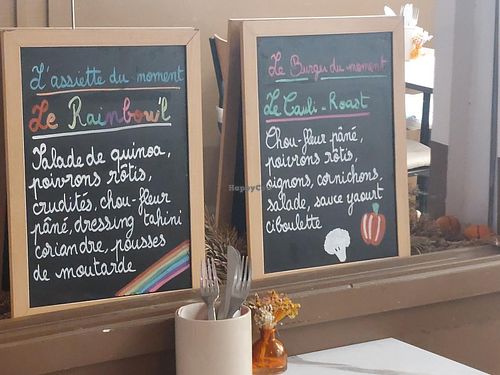 L'assiette du moment
Le Rainbow'l
Salade de quinoa,
poivrons rôtis,
crudités, chou-fleur
pâné, dressing tahini
coriandre, pousses
de moutarde
Le Burger du moment
Le Cauli-Roast
Chou-fleur pâné,
poivrons rôtis,
oignons, cornichons,
salade, sauce yaourt
ciboulette